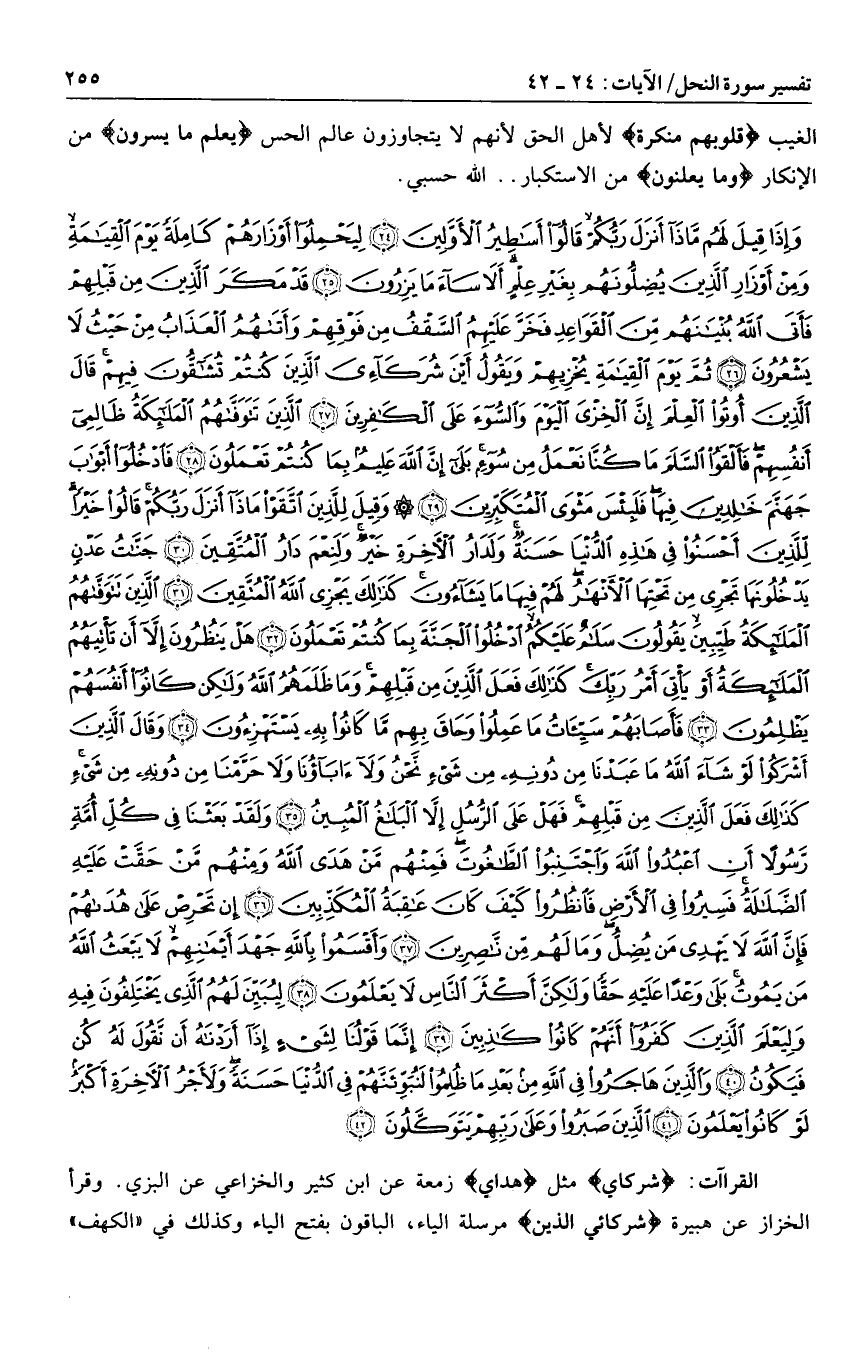 تفسير سورة النحل/ الآيات: ٢٤ - ٤٢
٢٥٥
الغيب ﴿قلوبهم منكرة﴾ لأهل الحق لأنهم لا يتجاوزون عالم الحس ﴿يعلم ما يسرون﴾ من
الإنكار ﴿وما يعلنون﴾ من الاستكبار.. الله حسبي.
وَإِذَا قِيلَ لَهُم مَّاذَآ أَنزَلَ رَبُّكُمْ ۙ قَالُوٓا۟ أَسَٰطِيرُ ٱلْأَوَّلِينَ ﴿٢٤﴾ لِيَحْمِلُوٓا۟ أَوْزَارَهُمْ كَامِلَةً يَوْمَ ٱلْقِيَٰمَةِ ۙ
وَمِنْ أَوْزَارِ ٱلَّذِينَ يُضِلُّونَهُم بِغَيْرِ عِلْمٍ ۗ أَلَا سَآءَ مَا يَزِرُونَ ﴿٢٥﴾ قَدْ مَكَرَ ٱلَّذِينَ مِن قَبْلِهِمْ
فَأَتَى ٱللَّهُ بُنْيَٰنَهُم مِّنَ ٱلْقَوَاعِدِ فَخَرَّ عَلَيْهِمُ ٱلسَّقْفُ مِن فَوْقِهِمْ وَأَتَىٰهُمُ ٱلْعَذَابُ مِنْ حَيْثُ لَا
يَشْعُرُونَ ﴿٢٦﴾ ثُمَّ يَوْمَ ٱلْقِيَٰمَةِ يُخْزِيهِمْ وَيَقُولُ أَيْنَ شُرَكَآءِىَ ٱلَّذِينَ كُنتُمْ تُشَٰٓقُّونَ فِيهِمْ ۚ قَالَ
ٱلَّذِينَ أُوتُوا۟ ٱلْعِلْمَ إِنَّ ٱلْخِزْىَ ٱلْيَوْمَ وَٱلسُّوٓءَ عَلَى ٱلْكَٰفِرِينَ ﴿٢٧﴾ ٱلَّذِينَ تَتَوَفَّىٰهُمُ ٱلْمَلَٰٓئِكَةُ ظَالِمِىٓ
أَنفُسِهِمْ ۖ فَأَلْقَوُا۟ ٱلسَّلَمَ مَا كُنَّا نَعْمَلُ مِن سُوٓءٍۭ ۚ بَلَىٰٓ إِنَّ ٱللَّهَ عَلِيمٌۢ بِمَا كُنتُمْ تَعْمَلُونَ ﴿٢٨﴾ فَٱدْخُلُوٓا۟ أَبْوَٰبَ
جَهَنَّمَ خَٰلِدِينَ فِيهَا ۖ فَلَبِئْسَ مَثْوَى ٱلْمُتَكَبِّرِينَ ﴿٢٩﴾ ۞ وَقِيلَ لِلَّذِينَ ٱتَّقَوْا۟ مَاذَآ أَنزَلَ رَبُّكُمْ ۚ قَالُوا۟ خَيْرًا ۗ
لِّلَّذِينَ أَحْسَنُوا۟ فِى هَٰذِهِ ٱلدُّنْيَا حَسَنَةٌ ۚ وَلَدَارُ ٱلْءَاخِرَةِ خَيْرٌ ۚ وَلَنِعْمَ دَارُ ٱلْمُتَّقِينَ ﴿٣٠﴾ جَنَّٰتُ عَدْنٍ
يَدْخُلُونَهَا تَجْرِى مِن تَحْتِهَا ٱلْأَنْهَٰرُ ۖ لَهُمْ فِيهَا مَا يَشَآءُونَ ۚ كَذَٰلِكَ يَجْزِى ٱللَّهُ ٱلْمُتَّقِينَ ﴿٣١﴾ ٱلَّذِينَ تَتَوَفَّىٰهُمُ
ٱلْمَلَٰٓئِكَةُ طَيِّبِينَ ۙ يَقُولُونَ سَلَٰمٌ عَلَيْكُمُ ٱدْخُلُوا۟ ٱلْجَنَّةَ بِمَا كُنتُمْ تَعْمَلُونَ ﴿٣٢﴾ هَلْ يَنظُرُونَ إِلَّآ أَن تَأْتِيَهُمُ
ٱلْمَلَٰٓئِكَةُ أَوْ يَأْتِىَ أَمْرُ رَبِّكَ ۚ كَذَٰلِكَ فَعَلَ ٱلَّذِينَ مِن قَبْلِهِمْ ۚ وَمَا ظَلَمَهُمُ ٱللَّهُ وَلَٰكِن كَانُوٓا۟ أَنفُسَهُمْ
يَظْلِمُونَ ﴿٣٣﴾ فَأَصَابَهُمْ سَيِّـَٔاتُ مَا عَمِلُوا۟ وَحَاقَ بِهِم مَّا كَانُوا۟ بِهِۦ يَسْتَهْزِءُونَ ﴿٣٤﴾ وَقَالَ ٱلَّذِينَ
أَشْرَكُوا۟ لَوْ شَآءَ ٱللَّهُ مَا عَبَدْنَا مِن دُونِهِۦ مِن شَىْءٍ نَّحْنُ وَلَآ ءَابَآؤُنَا وَلَا حَرَّمْنَا مِن دُونِهِۦ مِن شَىْءٍ ۚ
كَذَٰلِكَ فَعَلَ ٱلَّذِينَ مِن قَبْلِهِمْ ۚ فَهَلْ عَلَى ٱلرُّسُلِ إِلَّا ٱلْبَلَٰغُ ٱلْمُبِينُ ﴿٣٥﴾ وَلَقَدْ بَعَثْنَا فِى كُلِّ أُمَّةٍ
رَّسُولًا أَنِ ٱعْبُدُوا۟ ٱللَّهَ وَٱجْتَنِبُوا۟ ٱلطَّٰغُوتَ ۖ فَمِنْهُم مَّنْ هَدَى ٱللَّهُ وَمِنْهُم مَّنْ حَقَّتْ عَلَيْهِ
ٱلضَّلَٰلَةُ ۚ فَسِيرُوا۟ فِى ٱلْأَرْضِ فَٱنظُرُوا۟ كَيْفَ كَانَ عَٰقِبَةُ ٱلْمُكَذِّبِينَ ﴿٣٦﴾ إِن تَحْرِصْ عَلَىٰ هُدَىٰهُمْ
فَإِنَّ ٱللَّهَ لَا يَهْدِى مَن يُضِلُّ ۖ وَمَا لَهُم مِّن نَّٰصِرِينَ ﴿٣٧﴾ وَأَقْسَمُوا۟ بِٱللَّهِ جَهْدَ أَيْمَٰنِهِمْ ۙ لَا يَبْعَثُ ٱللَّهُ
مَن يَمُوتُ ۚ بَلَىٰ وَعْدًا عَلَيْهِ حَقًّا وَلَٰكِنَّ أَكْثَرَ ٱلنَّاسِ لَا يَعْلَمُونَ ﴿٣٨﴾ لِيُبَيِّنَ لَهُمُ ٱلَّذِى يَخْتَلِفُونَ فِيهِ
وَلِيَعْلَمَ ٱلَّذِينَ كَفَرُوٓا۟ أَنَّهُمْ كَانُوا۟ كَٰذِبِينَ ﴿٣٩﴾ إِنَّمَا قَوْلُنَا لِشَىْءٍ إِذَآ أَرَدْنَٰهُ أَن نَّقُولَ لَهُۥ كُن
فَيَكُونُ ﴿٤٠﴾ وَٱلَّذِينَ هَاجَرُوا۟ فِى ٱللَّهِ مِنۢ بَعْدِ مَا ظُلِمُوا۟ لَنُبَوِّئَنَّهُمْ فِى ٱلدُّنْيَا حَسَنَةً ۖ وَلَأَجْرُ ٱلْءَاخِرَةِ أَكْبَرُ ۚ
لَوْ كَانُوا۟ يَعْلَمُونَ ﴿٤١﴾ ٱلَّذِينَ صَبَرُوا۟ وَعَلَىٰ رَبِّهِمْ يَتَوَكَّلُونَ ﴿٤٢﴾
القراآت: ﴿شركاي﴾ مثل ﴿هداي﴾ زمعة عن ابن كثير والخزاعي عن البزي. وقرأ
الخزاز عن هبيرة ﴿شركائي الذين﴾ مرسلة الياء، الباقون بفتح الياء وكذلك في «الكهف»